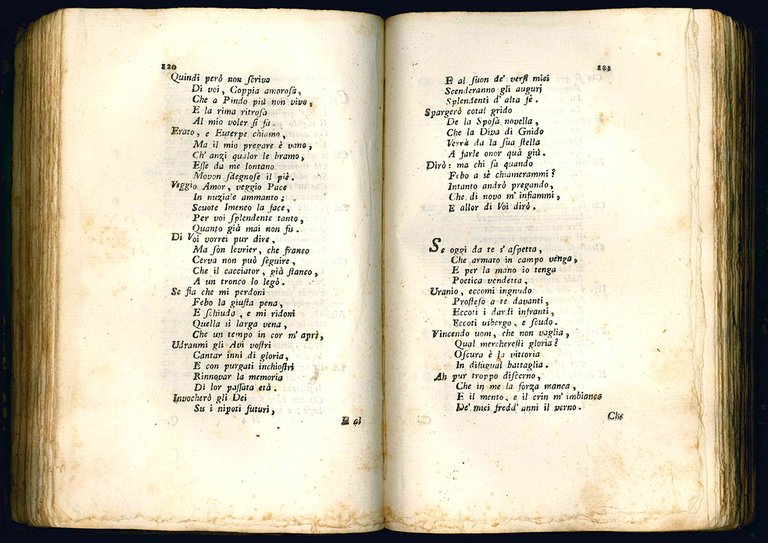 120
Quindi però non ſcrivo
Di voi, Coppia amoroſa,
Che a Pindo più non vivo,
E la rima ritroſa
Al mio voler ſi fa.
Erato, e Euterpe chiamo,
Ma il mio pregare è vano,
Ch' anzi qualor le bramo,
Eſſe da me lontano
Movon ſdegnoſe il piè.
Veggio Amor, veggio Pace
In nuziale ammanto;
Scuote Imeneo la face,
Per voi ſplendente tanto,
Quanto già mai non fu.
Di Voi vorrei pur dire,
Ma ſon levrier, che franco
Cerva non può ſeguire,
Che il cacciator, già ſtanco,
A un tronco lo legò.
Se ſia che mi perdoni
Febo la giuſta pena,
E ſchiuda, e mi ridoni
Quella sì larga vena,
Che un tempo in cor m' aprì,
Udranmi gli Avi voſtri
Cantar inni di gloria,
E con purgati inchioſtri
Rinnovar la memoria
Di lor paſſata età.
Invocherò gli Dei
Su i nipoti futuri,
E al
121
E al ſuon de' verſi miei
Scenderanno gli auguri
Splendenti d' alta fè.
Spargerò cotal grido
De la Spoſa novella,
Che la Diva di Gnido
Verrà da la ſua ſtella
A farle onor quà giù.
Dirò: ma chi ſa quando
Febo a sè chiamerammi?
Intanto andrò pregando,
Che di novo m' infiammi,
E allor di Voi dirò.
Se oggi da te s' aſpetta,
Che armato in campo venga,
E per la mano io tenga
Poetica vendetta,
Uranio, eccomi ingnudo
Proſteſo a te davanti,
Eccoti i dardi infranti,
Eccoti usbergo, e ſcudo.
Vincendo uom, che non vaglia,
Qual mercherеſti gloria?
Oſcura è la vittoria
In diſugual battaglia.
Ah pur troppo diſcerno,
Che in me la forza manca,
E il mento, e il crin m' imbianca
De' miei fredd' anni il verno.
Che